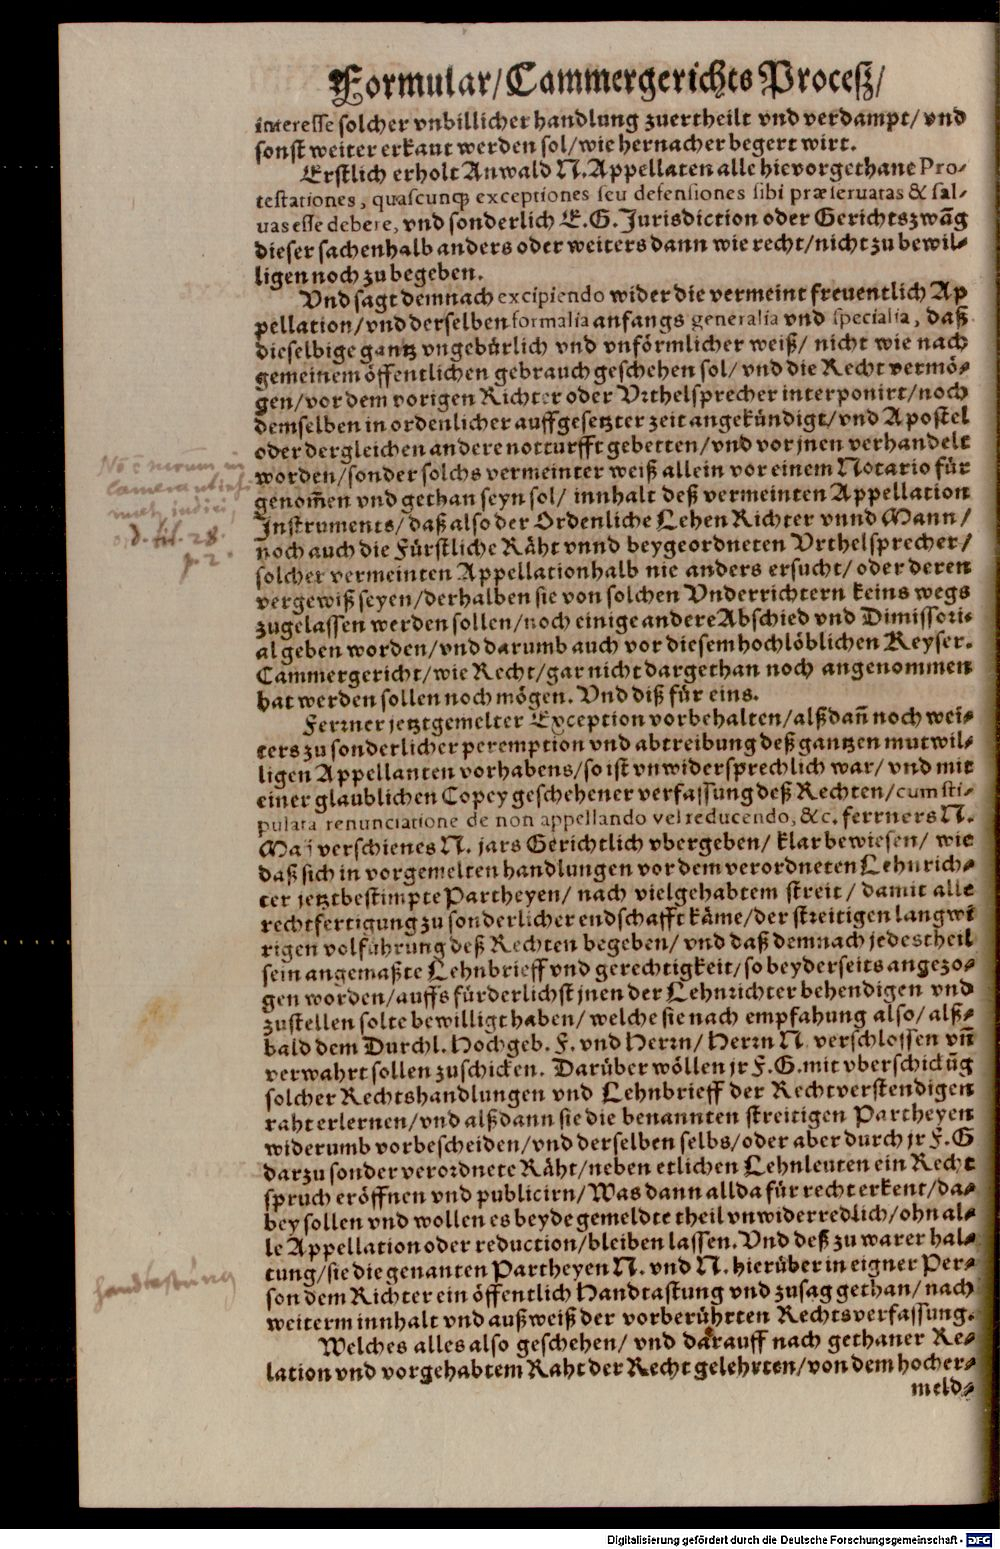 Formular/ Cammergerichts Proceß/
interesse solcher vnbillicher handlung zuertheilt vnd verdampt/ vnd
sonst weiter erkant werden sol/ wie hernacher begert wirt.
Erstlich erholt Anwald N. Appellaten alle hievorgethane Pro-
testationes, quascunq; exceptiones seu defensiones sibi præseruatas & sal-
uas esse debere, vnd sonderlich E. G. Jurisdiction oder Gerichtszwãg
dieser sachenhalb anders oder weiters dann wie recht/ nicht zu bewil-
ligen noch zu begeben.
Vnd sagt demnach excipiendo wider die vermeint freuentlich Ap
pellation/ vnd derselben formalia anfangs generalia vnd specialia, daß
dieselbige gantz vngebürlich vnd vnförmlicher weiß/ nicht wie nach
gemeinem öffentlichen gebrauch geschehen sol/ vnd die Recht vermö-
gen/ vor dem vorigen Richter oder Vrthelsprecher interponirt/ noch
demselben in ordenlicher auffgesetzter zeit angekündigt/ vnd Apostel
oder dergleichen andere notturfft gebetten/ vnd vor jnen verhandelt
worden/ sonder solchs vermeinter weiß allein vor einem Notario für
genom̃en vnd gethan seyn sol/ innhalt deß vermeinten Appellation
Instruments/ daß also der Ordenliche Lehen Richter vnnd Mann/
noch auch die Fürstliche Räht vnnd beygeordneten Vrthelsprecher/
solcher vermeinten Appellationhalb nie anders ersucht/ oder deren
vergewiß seyen/ derhalben sie von solchen Vnderrichtern keins wegs
zugelassen werden sollen/ noch einige andere Abschied vnd Dimissori-
al geben worden/ vnd darumb auch vor diesem hochlöblichen Keyser.
Cammergericht/ wie Recht/ gar nicht dargethan noch angenommen
hat werden sollen noch mögen. Vnd diß für eins.
Ferrner jetztgemelter Exception vorbehalten/ alßdañ noch wei-
ters zu sonderlicher peremption vnd abtreibung deß gantzen mutwil-
ligen Appellanten vorhabens/ so ist vnwidersprechlich war/ vnd mit
einer glaublichen Copey geschehener verfassung deß Rechten/ cum sti-
pulata renunciatione de non appellando vel reducendo, &c. ferrners N.
Maj verschienes N. jars Gerichtlich vbergeben/ klar bewiesen/ wie
daß sich in vorgemelten handlungen vor dem verordneten Lehnrich-
ter jetztbestimpte Partheyen/ nach vielgehabtem streit/ damit alle
rechtfertigung zu sonderlicher endschafft käme/ der streitigen langwi
rigen volführung deß Rechten begeben/ vnd daß demnach jedes theil
sein angemaßte Lehnbrieff vnd gerechtigkeit/ so beyderseits angezo-
gen worden/ auffs fürderlichst jnen der Lehnrichter behendigen vnd
zustellen solte bewilligt haben/ welche sie nach empfahung also/ alß-
bald dem Durchl. Hochgeb. F. vnd Herrn/ Herrn N. verschlossen vñ
verwahrt sollen zuschicken. Darüber wöllen jr F. G. mit vberschickũg
solcher Rechtshandlungen vnd Lehnbrieff der Rechtverstendigen
raht erlernen/ vnd alßdann sie die benannten streitigen Partheyen
widerumb vorbescheiden/ vnd derselben selbs/ oder aber durch jr F. G
darzu sonder verordnete Räht/ neben etlichen Lehnleuten ein Recht
spruch eröffnen vnd publicirn/ Was dann allda für recht erkent/ da-
bey sollen vnd wollen es beyde gemeldte theil vnwiderredlich/ ohn al-
le Appellation oder reduction/ bleiben lassen. Vnd deß zu warer hal-
tung/ sie die genanten Partheyen N. vnd N. hierüber in eigner Per-
son dem Richter ein öffentlich Handtastung vnd zusag gethan/ nach
weiterm innhalt vnd außweiß der vorberührten Rechtsverfassung.
Welches alles also geschehen/ vnd darauff nach gethaner Re-
lation vnd vorgehabtem Raht der Recht gelehrten/ von dem hocher-
meld-
d. tit. 28.
p. 2
handtastung
Digitalisierung gefördert durch die Deutsche Forschungsgemeinschaft - DFG